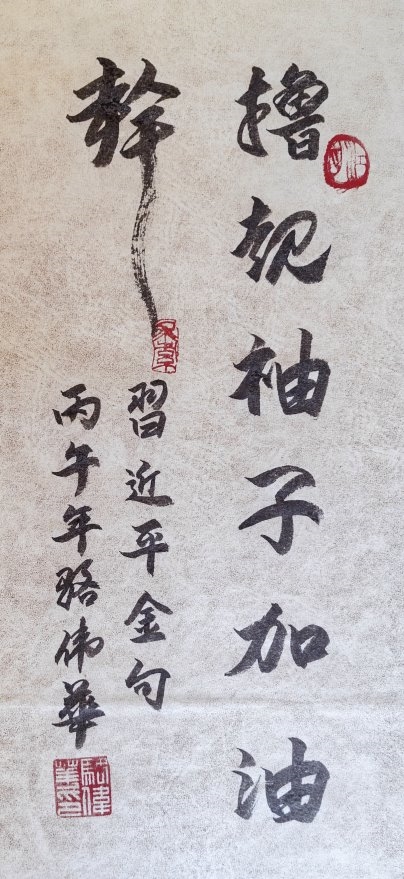 擼起袖子加油
幹
習近平金句
丙午年駱偉華
駱偉華印